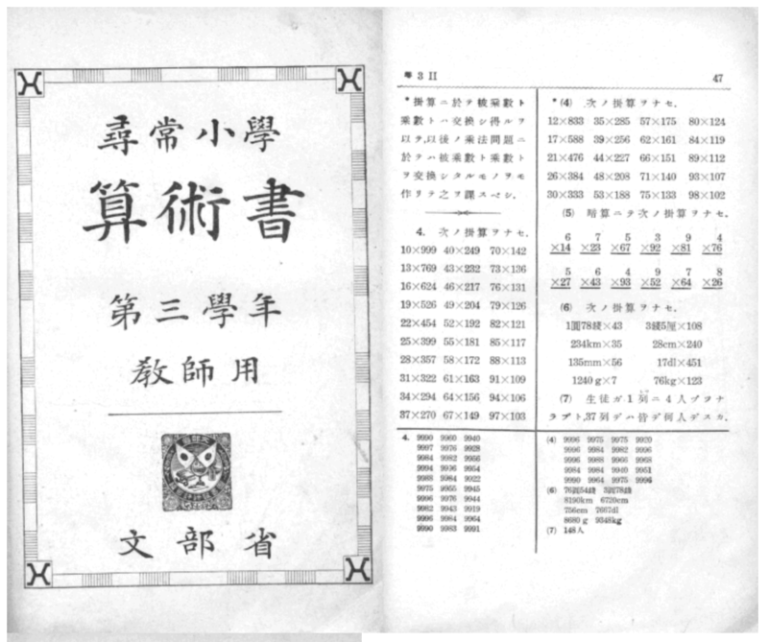 尋常小學
算術書
第三學年
教師用
文部省
尋 3 II 47
*掛算ニ於テ被乘數ト
乘數トハ交換シ得ルヲ
以テ,以後ノ乘法問題ニ
於テハ被乘數ト乘數ト
ヲ交換シタルモノヲモ
作リテ之ヲ課スベシ.
4. 次ノ掛算ヲナセ.
10×999 40×249 70×142
13×769 43×232 73×136
16×624 46×217 76×131
19×526 49×204 79×126
22×454 52×192 82×121
25×399 55×181 85×117
28×357 58×172 88×113
31×322 61×163 91×109
34×294 64×156 94×106
37×270 67×149 97×103
*(4) 次ノ掛算ヲナセ.
12×833 35×285 57×175 80×124
17×588 39×256 62×161 84×119
21×476 44×227 66×151 89×112
26×384 48×208 71×140 93×107
30×333 53×188 75×133 98×102
(5) 暗算ニテ次ノ掛算ヲナセ.
6 7 5 3 9 4
×14 ×23 ×67 ×92 ×81 ×76
5 6 4 9 7 8
×27 ×43 ×93 ×52 ×64 ×26
(6) 次ノ掛算ヲナセ.
1圓78錢×43 3錢5厘×108
234km×35 28cm×240
135mm×56 17dl×451
1240g×7 76kg×123
(7) 生徒ガ1列ニ4人ヅヽナ
ラブト,37列デハ皆デ何人デスカ.
4. 9990 9960 9940
9997 9976 9928
9984 9982 9956
9994 9996 9954
9988 9984 9922
9975 9955 9945
9996 9976 9944
9982 9943 9919
9996 9984 9964
9990 9983 9991
(4) 9996 9975 9975 9920
9996 9984 9982 9996
9996 9988 9966 9968
9984 9984 9940 9951
9990 9964 9975 9996
(6) 76圓54錢 3圓78錢
8190km 6720cm
756cm 7667dl
8680g 9348kg
(7) 148人